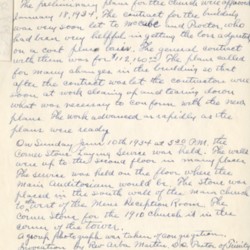 The preliminary plans for the church were approved
January 18, 1934. The contract for the building
was very soon let to and Proctor who
had been very helpful in getting the loss adjusted
on a cost plus basis. The general contract
with them was for $112,160.23. The plans called
for many changes in the building so that
after the contract was let the contractors were
soon at work clearing up and tearing down
what was necessary to conform with the new
plans. The work advanced as rapidly as the
plans were ready.
On Sunday June 10th 1934 at 3:00 P.M. the
Corner Stone Laying Service was held. The walls
were up to the second floor in many places.
The service was held on the floor, where the
Main Auditorium would be. The stone was
placed in the south wall of the Main Church
to West of the Mens Reception Room. The
Corner Stone for the 1910 church is in the
corner of the tower.
A group photograph was taken of congregation.
Invocation by Rev. Arlos Martin D.D. Pastor of